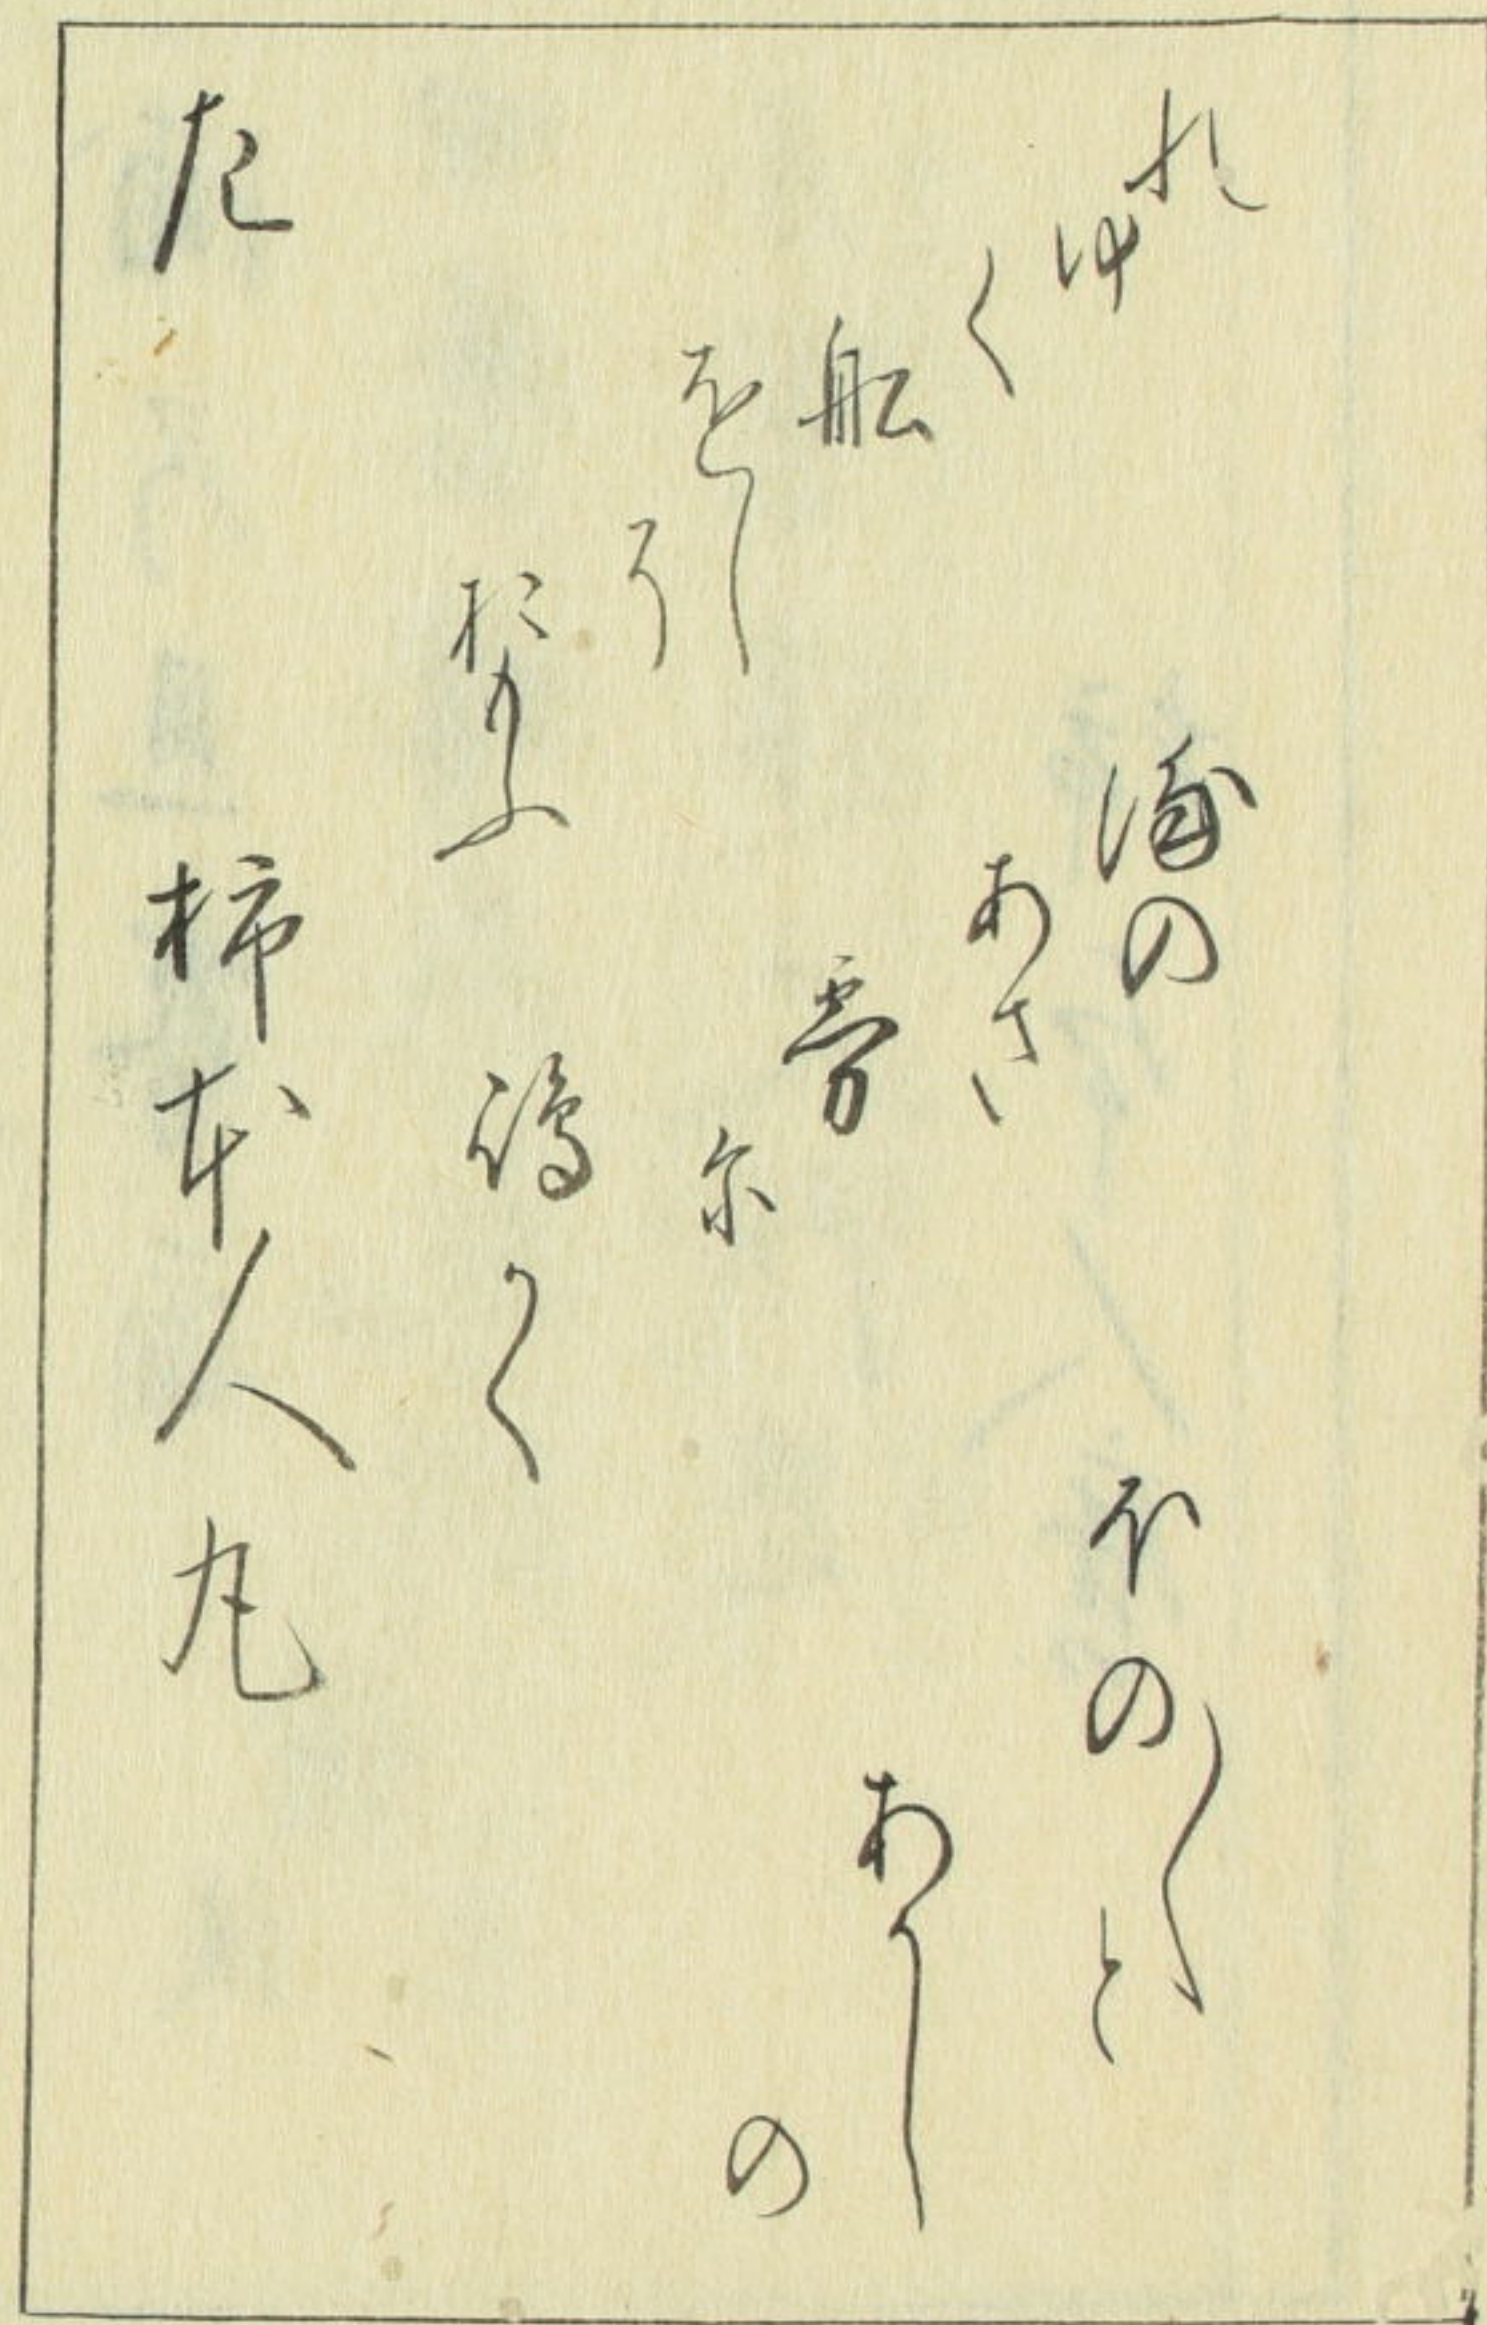 左
柿本人丸
ほの〱と
あかし
の
浦の
あさ
霧
尓
嶋かく
れ
ゆ
く
船
をし
そ
おもふ